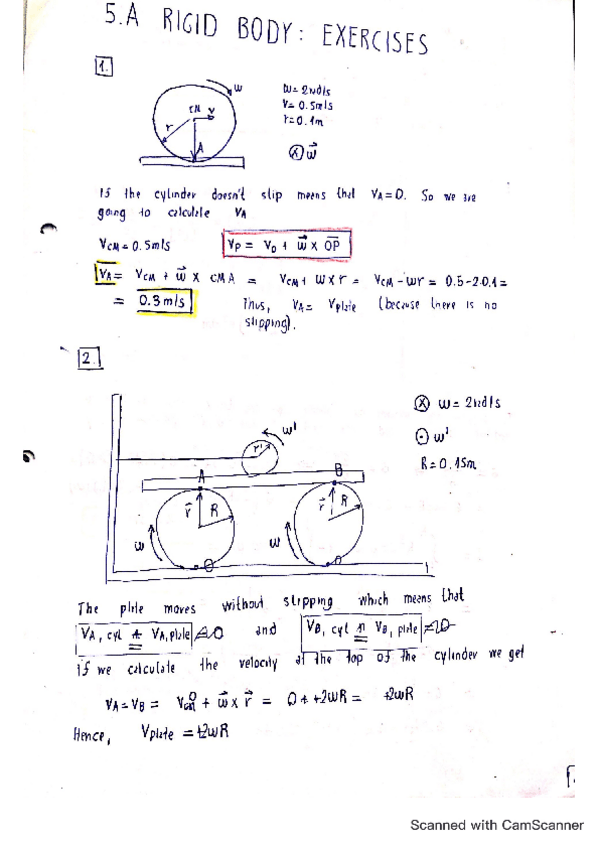 5.A RIGID BODY: EXERCISES
1.
ω
ω= 2rad/s
v= 0.5m/s
r= 0.1m
CM v
r
A
ⓧ ω⃗
If the cylinder doesn't slip means that VA=0. So we are
going to calculate VA
VCM= 0.5m/s
VP = VO + ω⃗ x OP
VA= VCM + ω⃗ x CMA = VCM + ω x r = VCM - ωr = 0.5-2·0.1=
= 0.3m/s
Thus, VA= Vplate (because there is no
slipping).
2.
ⓧ ω= 2rad/s
ω'
r'
⊙ ω'
R= 0.15m
A
B
r⃗ R
r⃗ R
ω
ω
O
The plate moves without slipping which means that
VA, cyl = VA, plate =0 and VB, cyl = VB, plate =0
if we calculate the velocity at the top of the cylinder we get
VA = VB = + ω⃗ x r⃗ = 0 + +2ωR = +2ωR
Hence, Vplate = +2ωR
Scanned with CamScanner